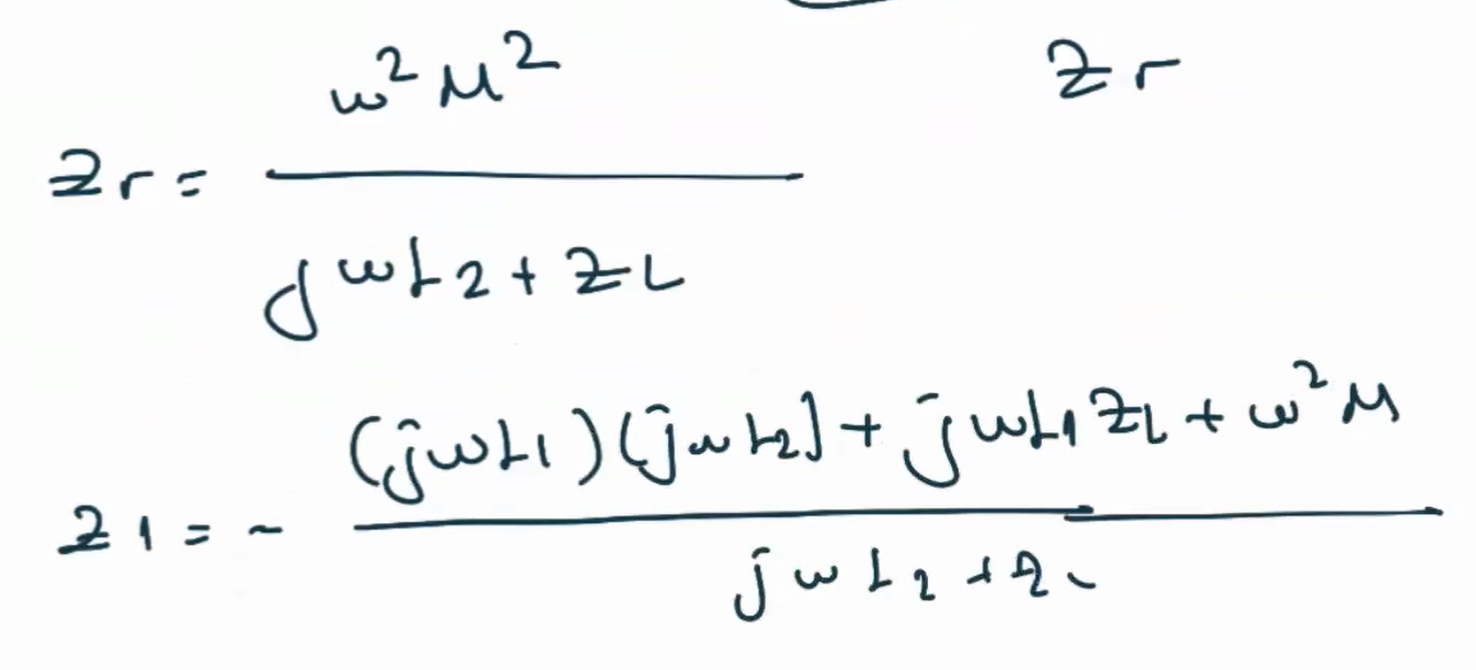 Zr = ω²M² / (jωL2 + ZL)
Zr
Z1 = - ((jωL1)(jωL2] + jωL1ZL + ω²M) / (jωL2 + Z